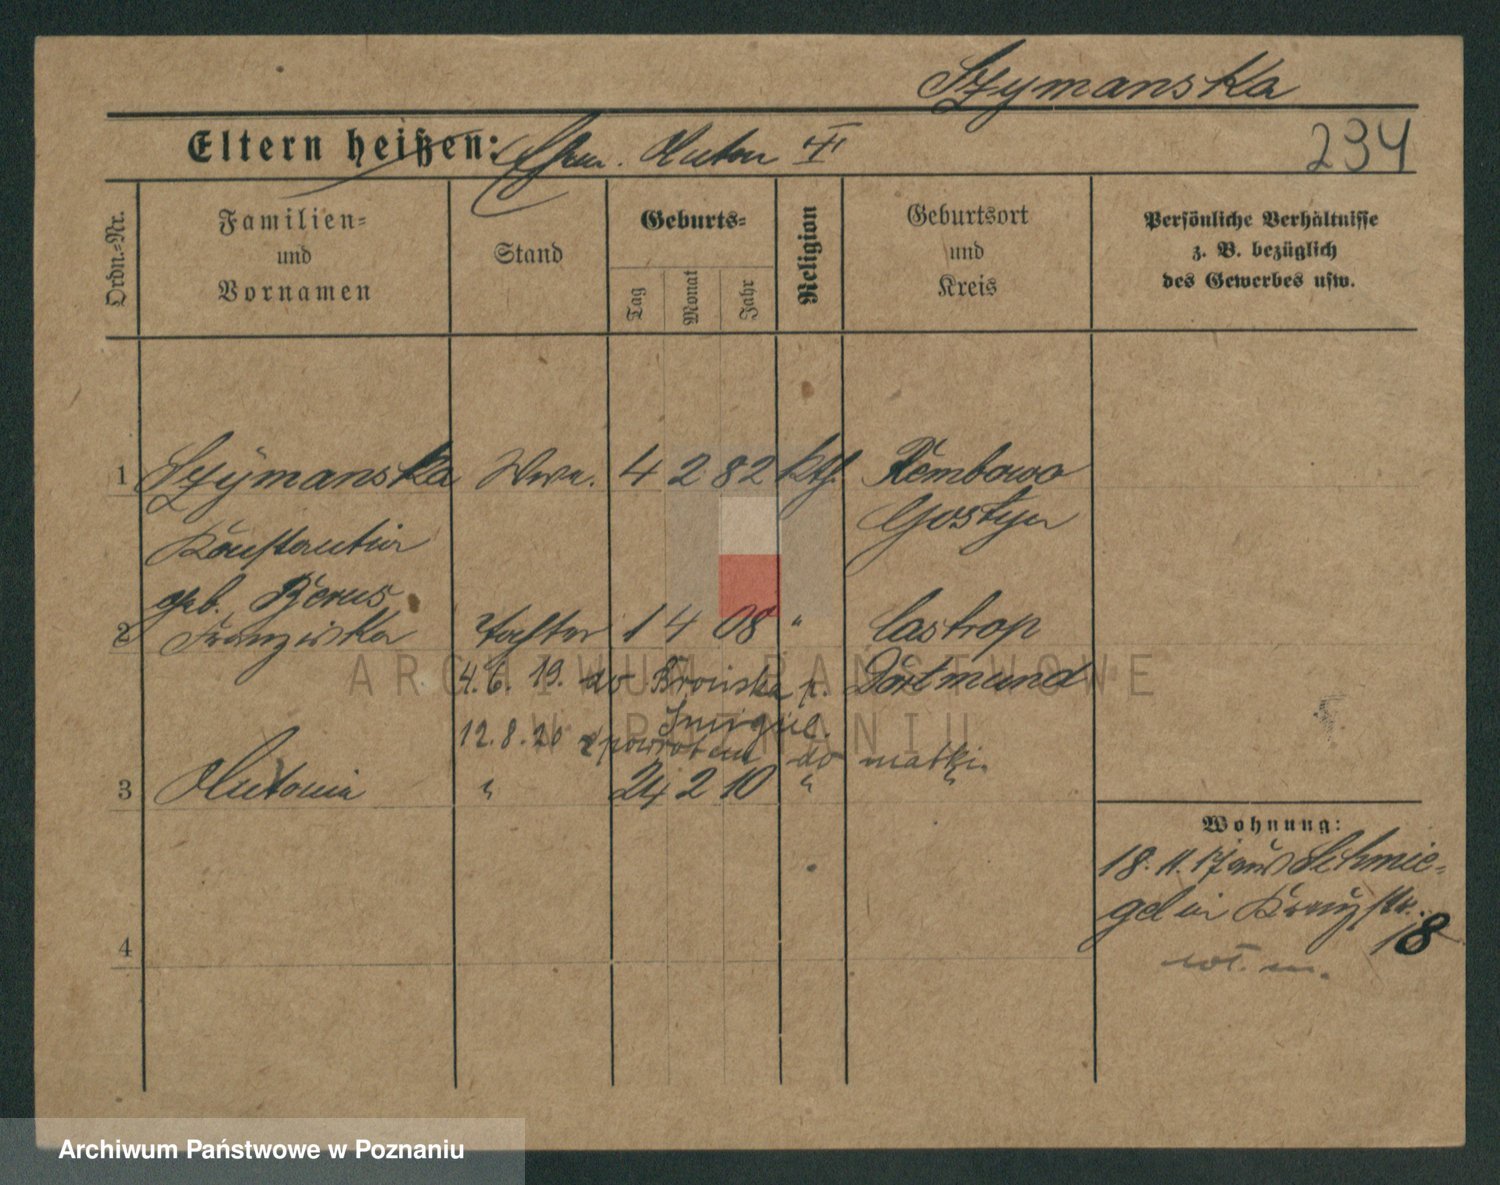 Szymanska
Eltern heißen: Ehem. Anton †
234
Ordn.=Nr.
Familien=
und
Vornamen
Stand
Geburts=
Tag
Monat
Jahr
Religion
Geburtsort
und
Kreis
Persönliche Verhältnisse
z. B. bezüglich
des Gewerbes usw.
1 Szymanska Wwe. 4 2 82 Kth. Rembowo
Gostyn
Konstantin
geb. Berus
2 Franziska Tochter 1 4 08 " Castrop
4.6. 19. do Bronska p. Dortmund
Smigiel.
12.8.20 z powrotem do matki.
3 Antonia " 24 2 10 " "
Wohnung:
18. 11. 17 aus Schmie=
gel in Kreuzstr.
18
4
ARCHIWUM PAŃSTWOWE
W POZNANIU
Archiwum Państwowe w Poznaniu